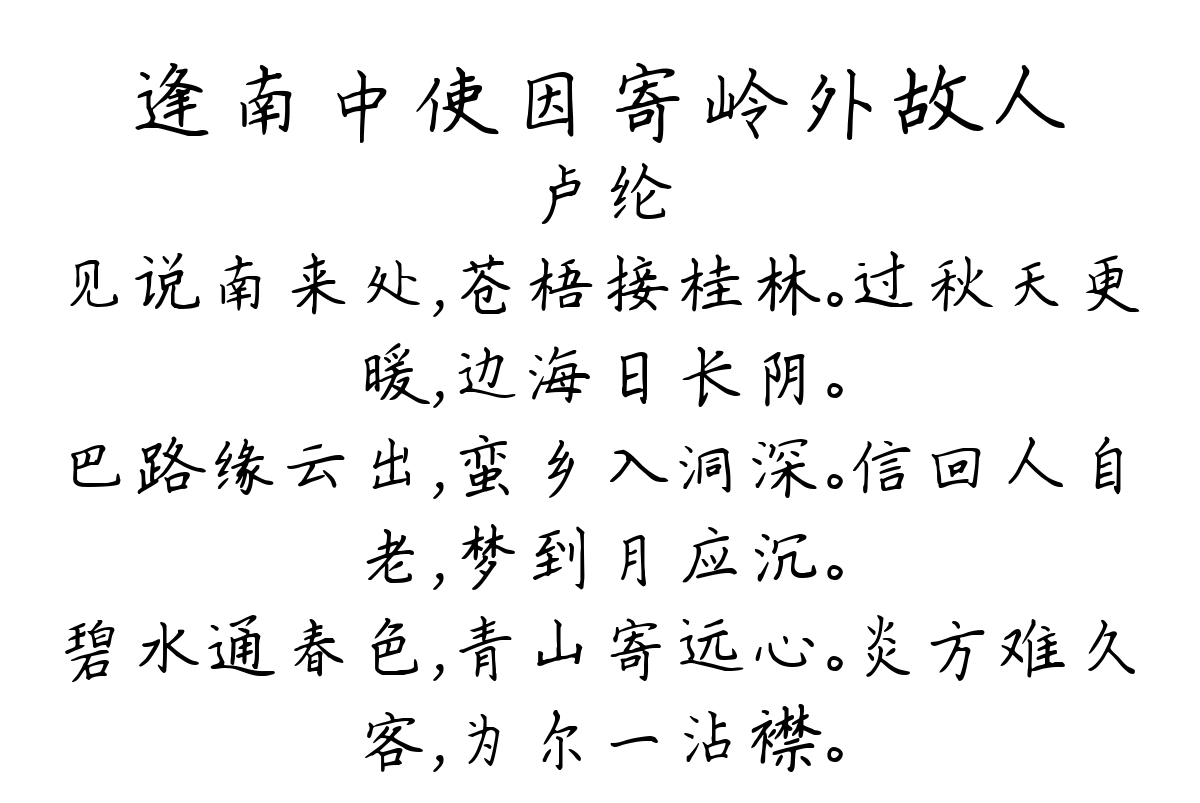 逢南中使因寄岭外故人
卢纶
见说南来处,苍梧接桂林。过秋天更
暖,边海日长阴。
巴路缘云出,蛮乡入洞深。信回人自
老,梦到月应沉。
碧水通春色,青山寄远心。炎方难久
客,为尔一沾襟。